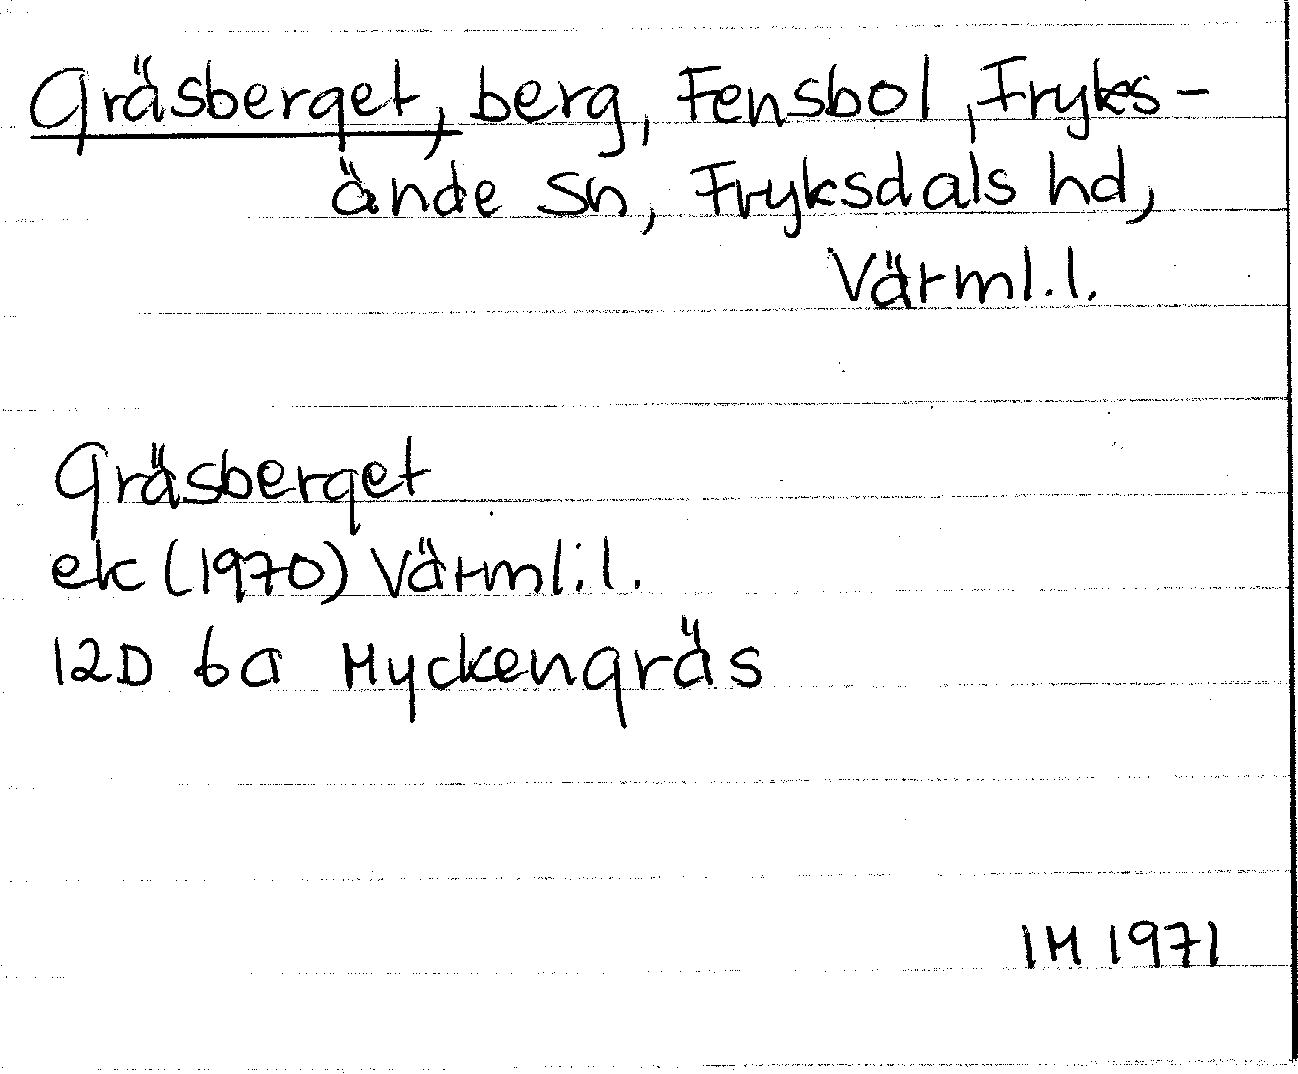 Gräsberget, berg, Fensbol, Fryks-
ände sn, Fryksdals hd,
Värml.l.
Gräsberget
ek (1970) Värml.l.
12D 6a Myckengräs
IM 1971